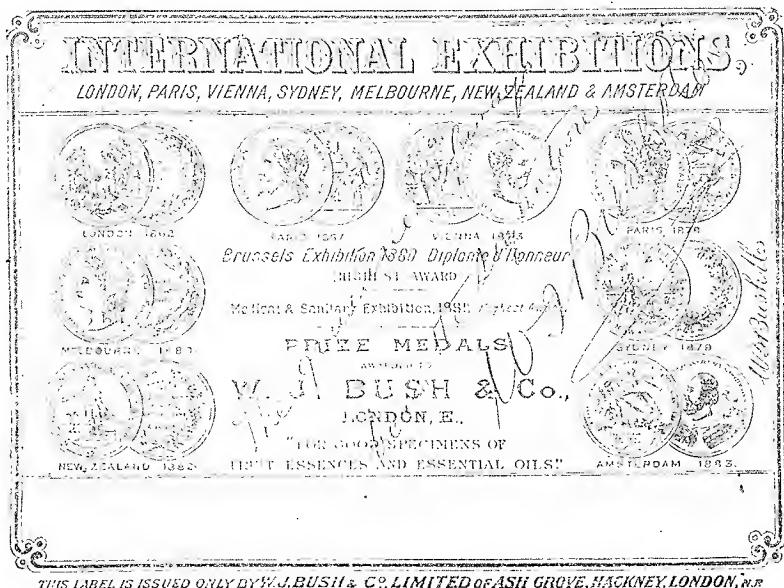 INTERNATIONAL EXHIBITIONS,
LONDON, PARIS, VIENNA, SYDNEY, MELBOURNE, NEW ZEALAND & AMSTERDAM
LONDON 1862
PARIS 1867
VIENNA 1873
PARIS 1878
Brussels Exhibition 1880 Diplome d'Honneur
HIGHEST AWARD
Medical & Sanitary Exhibition, 1881 Highest
MELBOURNE 1881
SYDNEY 1879
PRIZE MEDALS
AWARDED TO
W. J. BUSH & Co.,
LONDON, E.,
"FOR GOOD SPECIMENS OF
FRUIT ESSENCES AND ESSENTIAL OILS"
NEW ZEALAND 1882
AMSTERDAM 1883.
W J Bush & Co
THIS LABEL IS ISSUED ONLY BY W. J. BUSH & Co. LIMITED OF ASH GROVE, HACKNEY, LONDON, N.E.